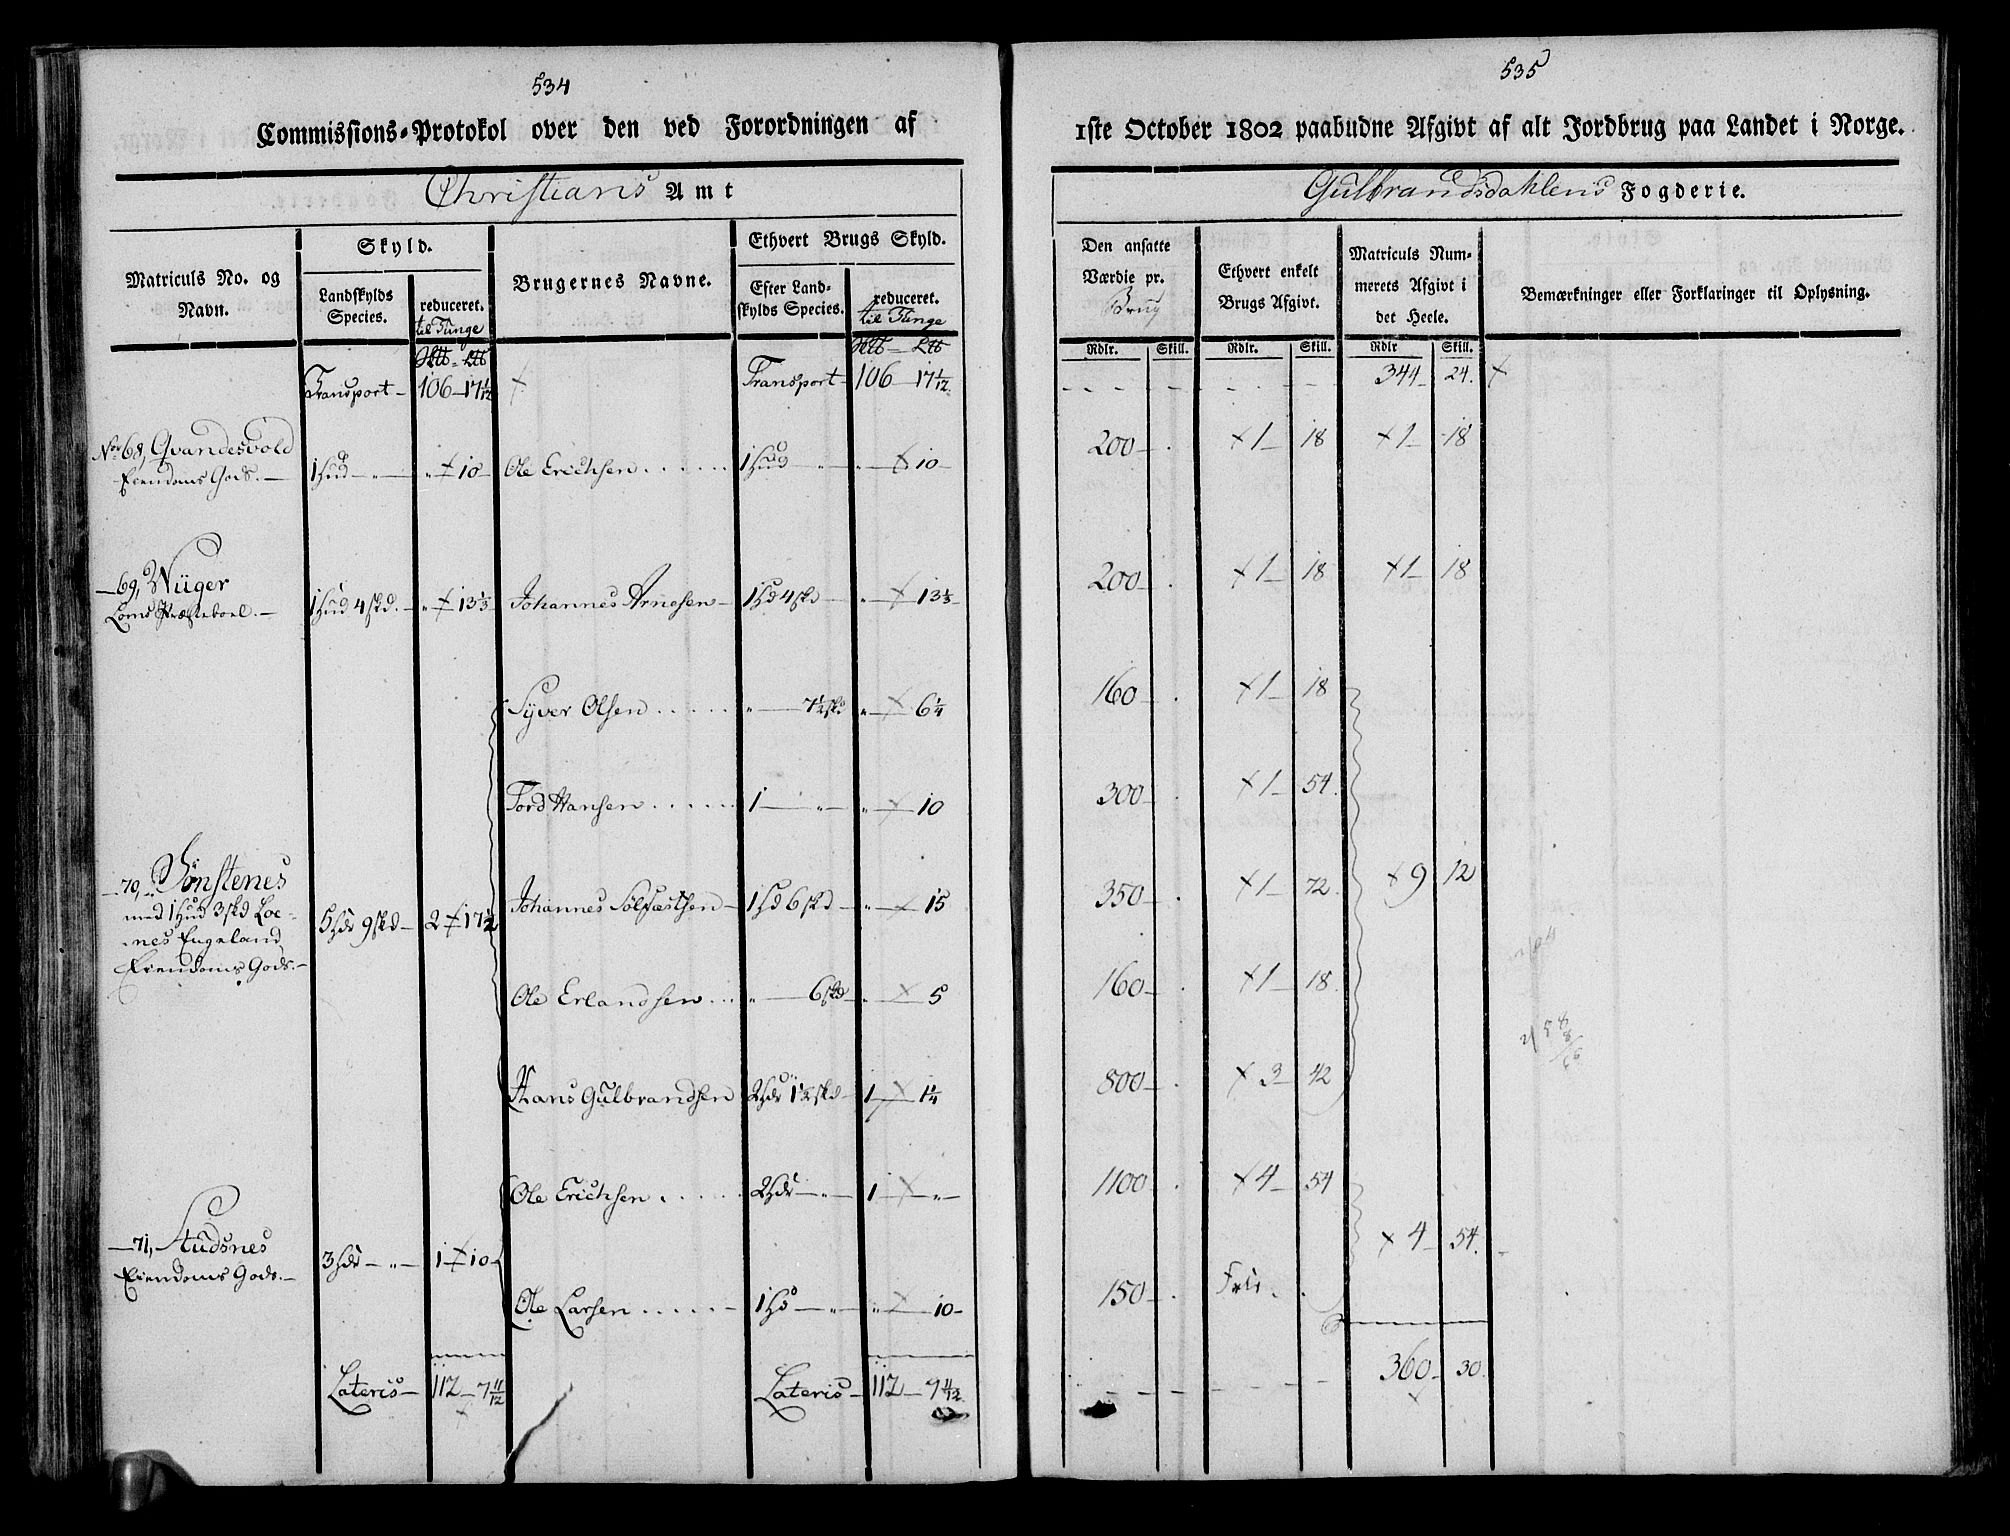 534
Commissions-Protokol over den ved Forordningen af
Christians Amt
Matriculs No. og Navn.
Skyld.
Landskylds Species.
reduceret.
til Tunge
Brugernes Navne.
Ethvert Brugs Skyld.
Efter Landskylds Species.
reduceret.
til Tunge
Transport 106 17 1/12 Transport 106 17 1/12
No 68, Qvandesvold
Eiendoms Gods. 1 Hud " " 10 Ole Erichsen 1 Hud " " 10
69, Wüger
Loms Præsteboel. 1 Hud 4 skd. " 13 1/3 Johannes Arnesen 1 Hd 4 skd " 13 1/3
Syver Olsen " 7 1/2 skd " 6 1/4
Tord Hansen 1 " " 10
70, Sönstenes
med 1 Hud 3 skd Loe-
nes Engeland
Eiendoms Gods. 5 Hdr 9 skd 2 17 1/2 Johannes Solfæstsen 1 Hd 6 skd " 15
Ole Erlandsen " 6 skd " 5
Hans Gulbrandsen 2 Hdr 1 1/2 skd 1 1 1/4
Ole Erichsen 2 Hdr " 1 "
71, Studsnes
Eiendoms Gods. 3 Hdr " 1 10
Ole Larsen 1 Hd " " 10
Lateris 112 7 11/12 Lateris 112 7 11/12
535
1ste October 1802 paabudne Afgivt af alt Jordbrug paa Landet i Norge.
Gulbrandsdahlens Fogderie.
Den ansatte Værdie pr.
Brug
Ethvert enkelt Brugs Afgivt.
Matriculs Nummerets Afgivt i det Heele.
Bemærkninger eller Forklaringer til Oplysning.
Rdlr. Skill. Rdlr. Skill. Rdlr Skill.
344 24.
200 1 18 1 18
200 1 18 1 18
160 1 18
300 1 54
350 1 72 9 12
160 1 18
800 3 42
1100 4 54
4 54
150 Frie.
360 30